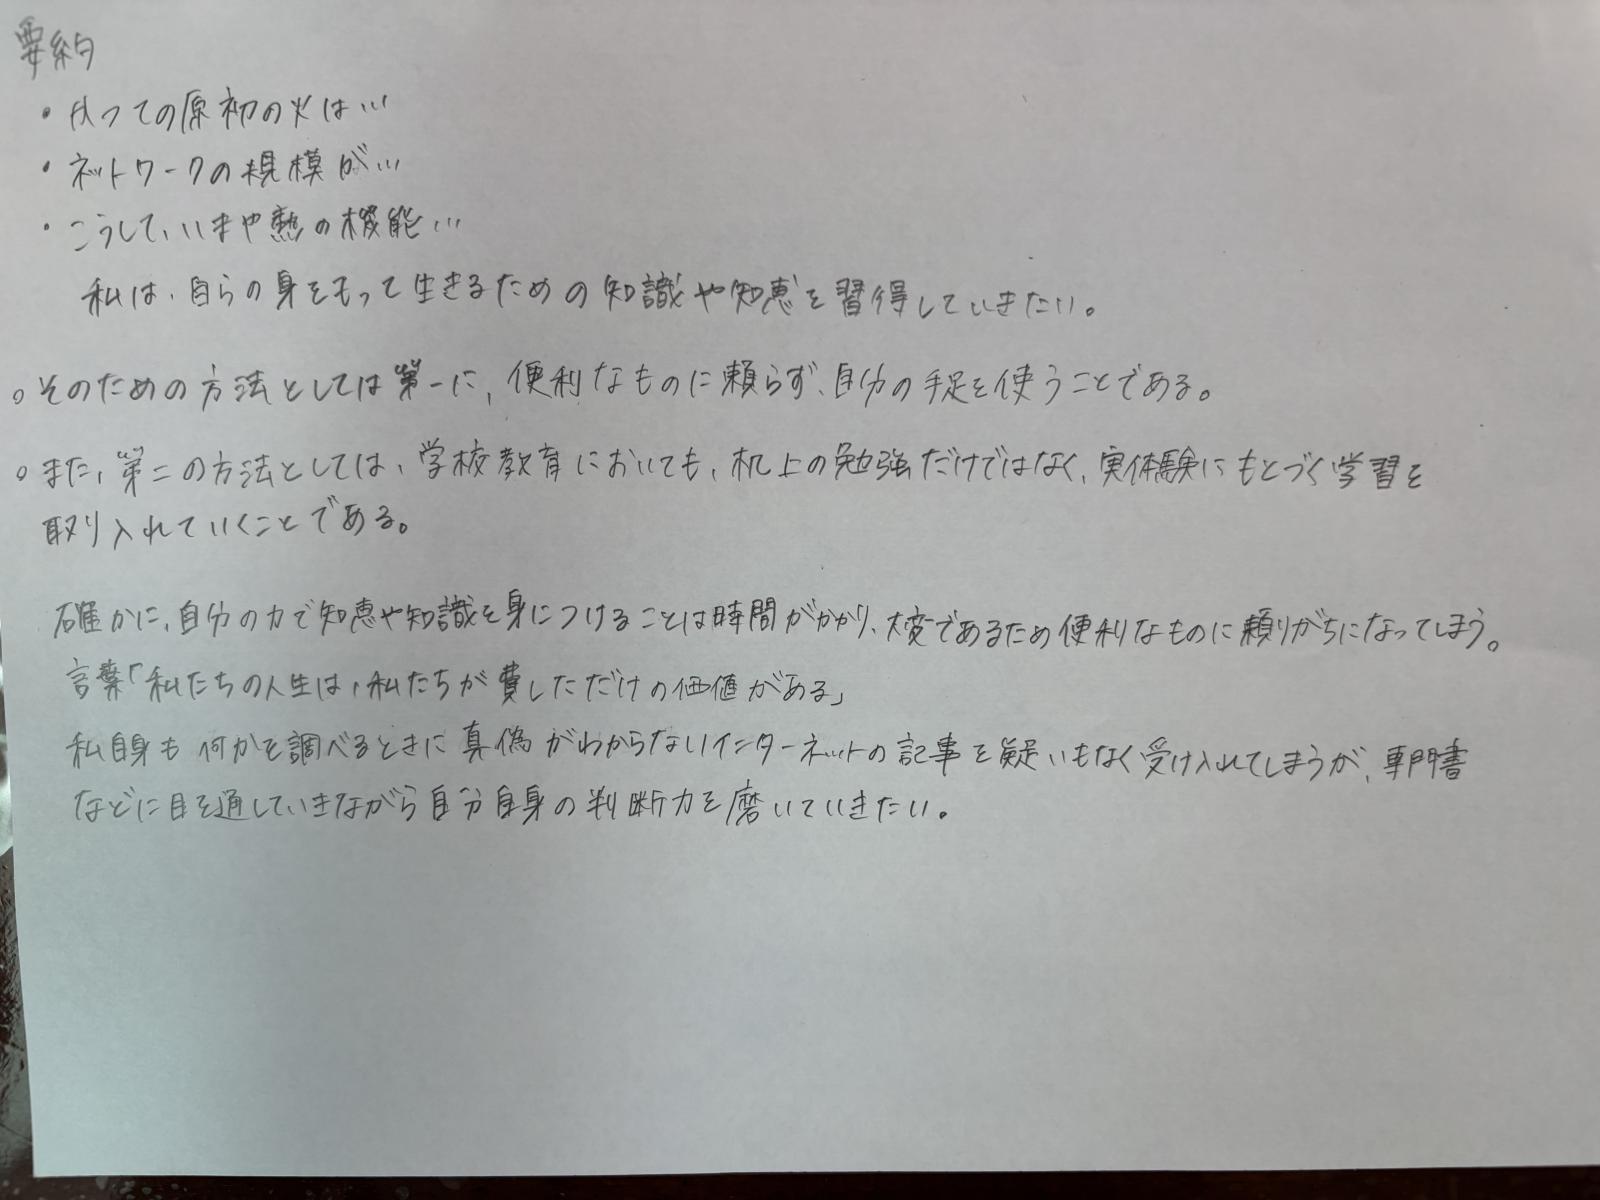 要約
・かつての原初の火は…
・ネットワークの規模が…
・こうして、いまや熱の機能…
私は、自らの身をもって生きるための知識や知恵を習得していきたい。
○そのための方法としては第一に、便利なものに頼らず、自分の手足を使うことである。
○また、第二の方法としては、学校教育においても、机上の勉強だけではなく、実体験にもとづく学習を
取り入れていくことである。
確かに、自分の力で知恵や知識を身につけることは時間がかかり、大変であるため便利なものに頼りがちになってしまう。
言葉「私たちの人生は、私たちが費しただけの価値がある」
私自身も何かを調べるときに真偽がわからないインターネットの記事を疑いもなく受け入れてしまうが、専門書
などに目を通していきながら自分自身の判断力を磨いていきたい。